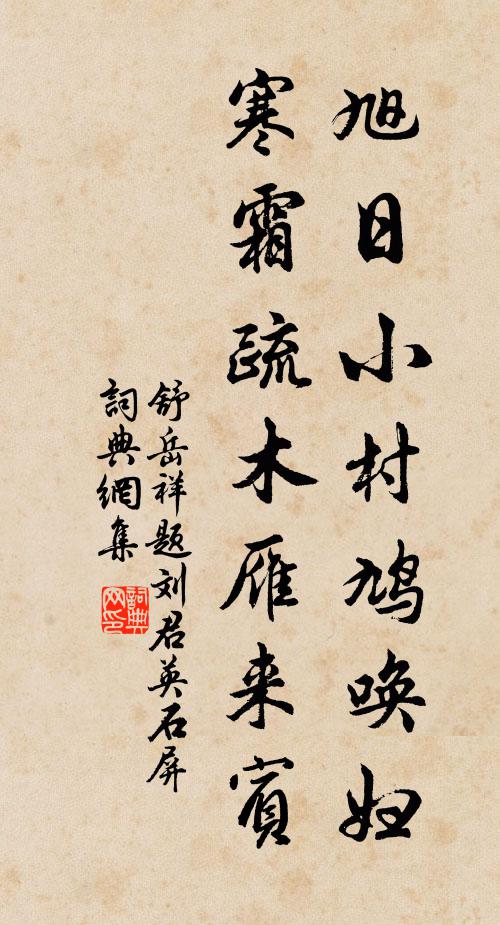 旭日小村鸠唤妇
寒霜疏木雁来宾
舒岳祥题刘君英石屏
詞典網集
詞典网印